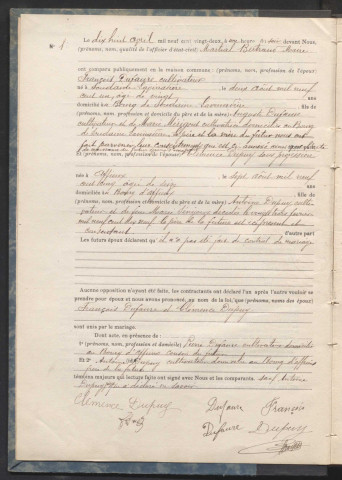 N° 1
Le dix huit avril mil neuf cent vingt deux, à dix heures du devant Nous,
(prénoms, nom, qualité de l'officier d'état-civil) Martial Bertrand Maire
ont comparu publiquement en la maison commune : (prénoms, nom, profession de l'époux)
François Dufaure cultivateur
né à Soudaine Lavinadière le deux août mil neuf
cent un âgé de vingt ans
domicilié à Bourg de Soudaine Lavinadière fils de
(prénoms, nom, profession, domicile du père et de la mère) Auguste Dufaure
cultivateur et de Marie cultivatrice domiciliés au Bourg
de Soudaine Lavinadière le père et la mère du futur
Et (prénoms, nom, profession de l'épouse) Clémence Dupuy sans profession
née à Affieux le sept août mil neuf
cent cinq âgée de seize ans
domiciliée à Bourg d'Affieux fille de
(prénoms, nom, profession, domicile du père et de la mère) Antoine Dupuy culti-
vateur et de Marie décédée le février
mil neuf cent dix neuf le père de la future ici présent et
consentant d'autre part
Les futurs époux déclarent qu'il n'a pas été fait de contrat de mariage
Aucune opposition n'ayant été faite, les contractants ont déclaré l'un après l'autre vouloir se
prendre pour époux et nous avons prononcé, au nom de la loi, que (prénoms, noms des époux)
François Dufaure et Clémence Dupuy
sont unis par le mariage.
Dont acte, en présence de :
1° (prénoms, nom, profession et domicile) Pierre Dufaure cultivateur domicilié
au Bourg d'Affieux cousin du futur
Et 2° Antoine Dupuy cultivateur domicilié au Bourg d'Affieux
père de la future
témoins majeurs qui lecture faite ont signé avec Nous et les comparants sauf Antoine
Dupuy qui a déclaré ne savoir
Clémence Dupuy Dufaure François
Dufaure Dupuy